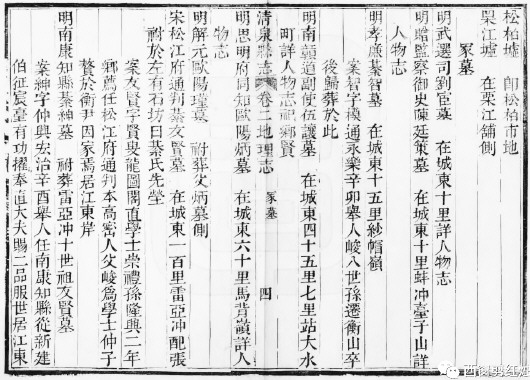 松柏墟　即松柏市地
栗江墟　在栗江鋪側
冢墓
明武選司劉宸墓　在城東十里詳人物志
明贈監察御史陳廷策墓　在城東十里蚌冲臺子山詳
人物志
明孝廉綦智墓　在城東十五里紗帽嶺
案智字模通永樂辛卯舉人峻八世孫遷衡山卒
後歸葬於此
明南贛道副使伍讓墓　在城東四十五里七里站大水
町詳人物志祀鄉賢
清泉縣志　卷二地理志　冢墓　四
明思明府同知歐陽炳墓　在城東六十里馬背嶺詳人
物志
明解元歐陽瑾墓　祔葬父炳墓側
宋松江府通判綦友賢墓　在城東一百里雷亞冲配張
祔於左有石坊曰綦氏先塋
案友賢字賢叟龍圖閣直學士崇禮孫隆興二年
鄉薦任松江府通判本高密人父峻爲學士仲子
贅於衡尹因家焉居江東岸
明南康知縣綦紳墓　祔葬雷亞冲十世祖友賢墓
案紳字仲興宏治辛酉舉人任南康知縣從新建
伯征宸毫有功擢奉直大夫賜二品服世居江東